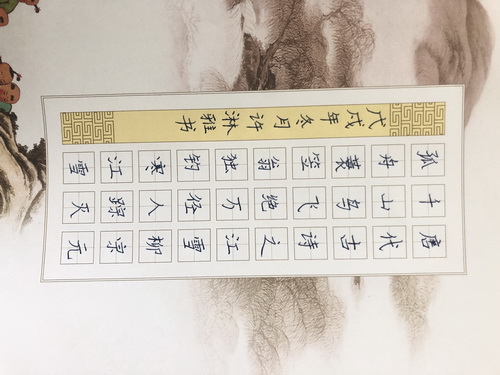 唐代古诗之江雪柳宗元
千山鸟飞绝万径人踪灭
孤舟蓑笠翁独钓寒江雪
戊戌年冬月许淋雅书